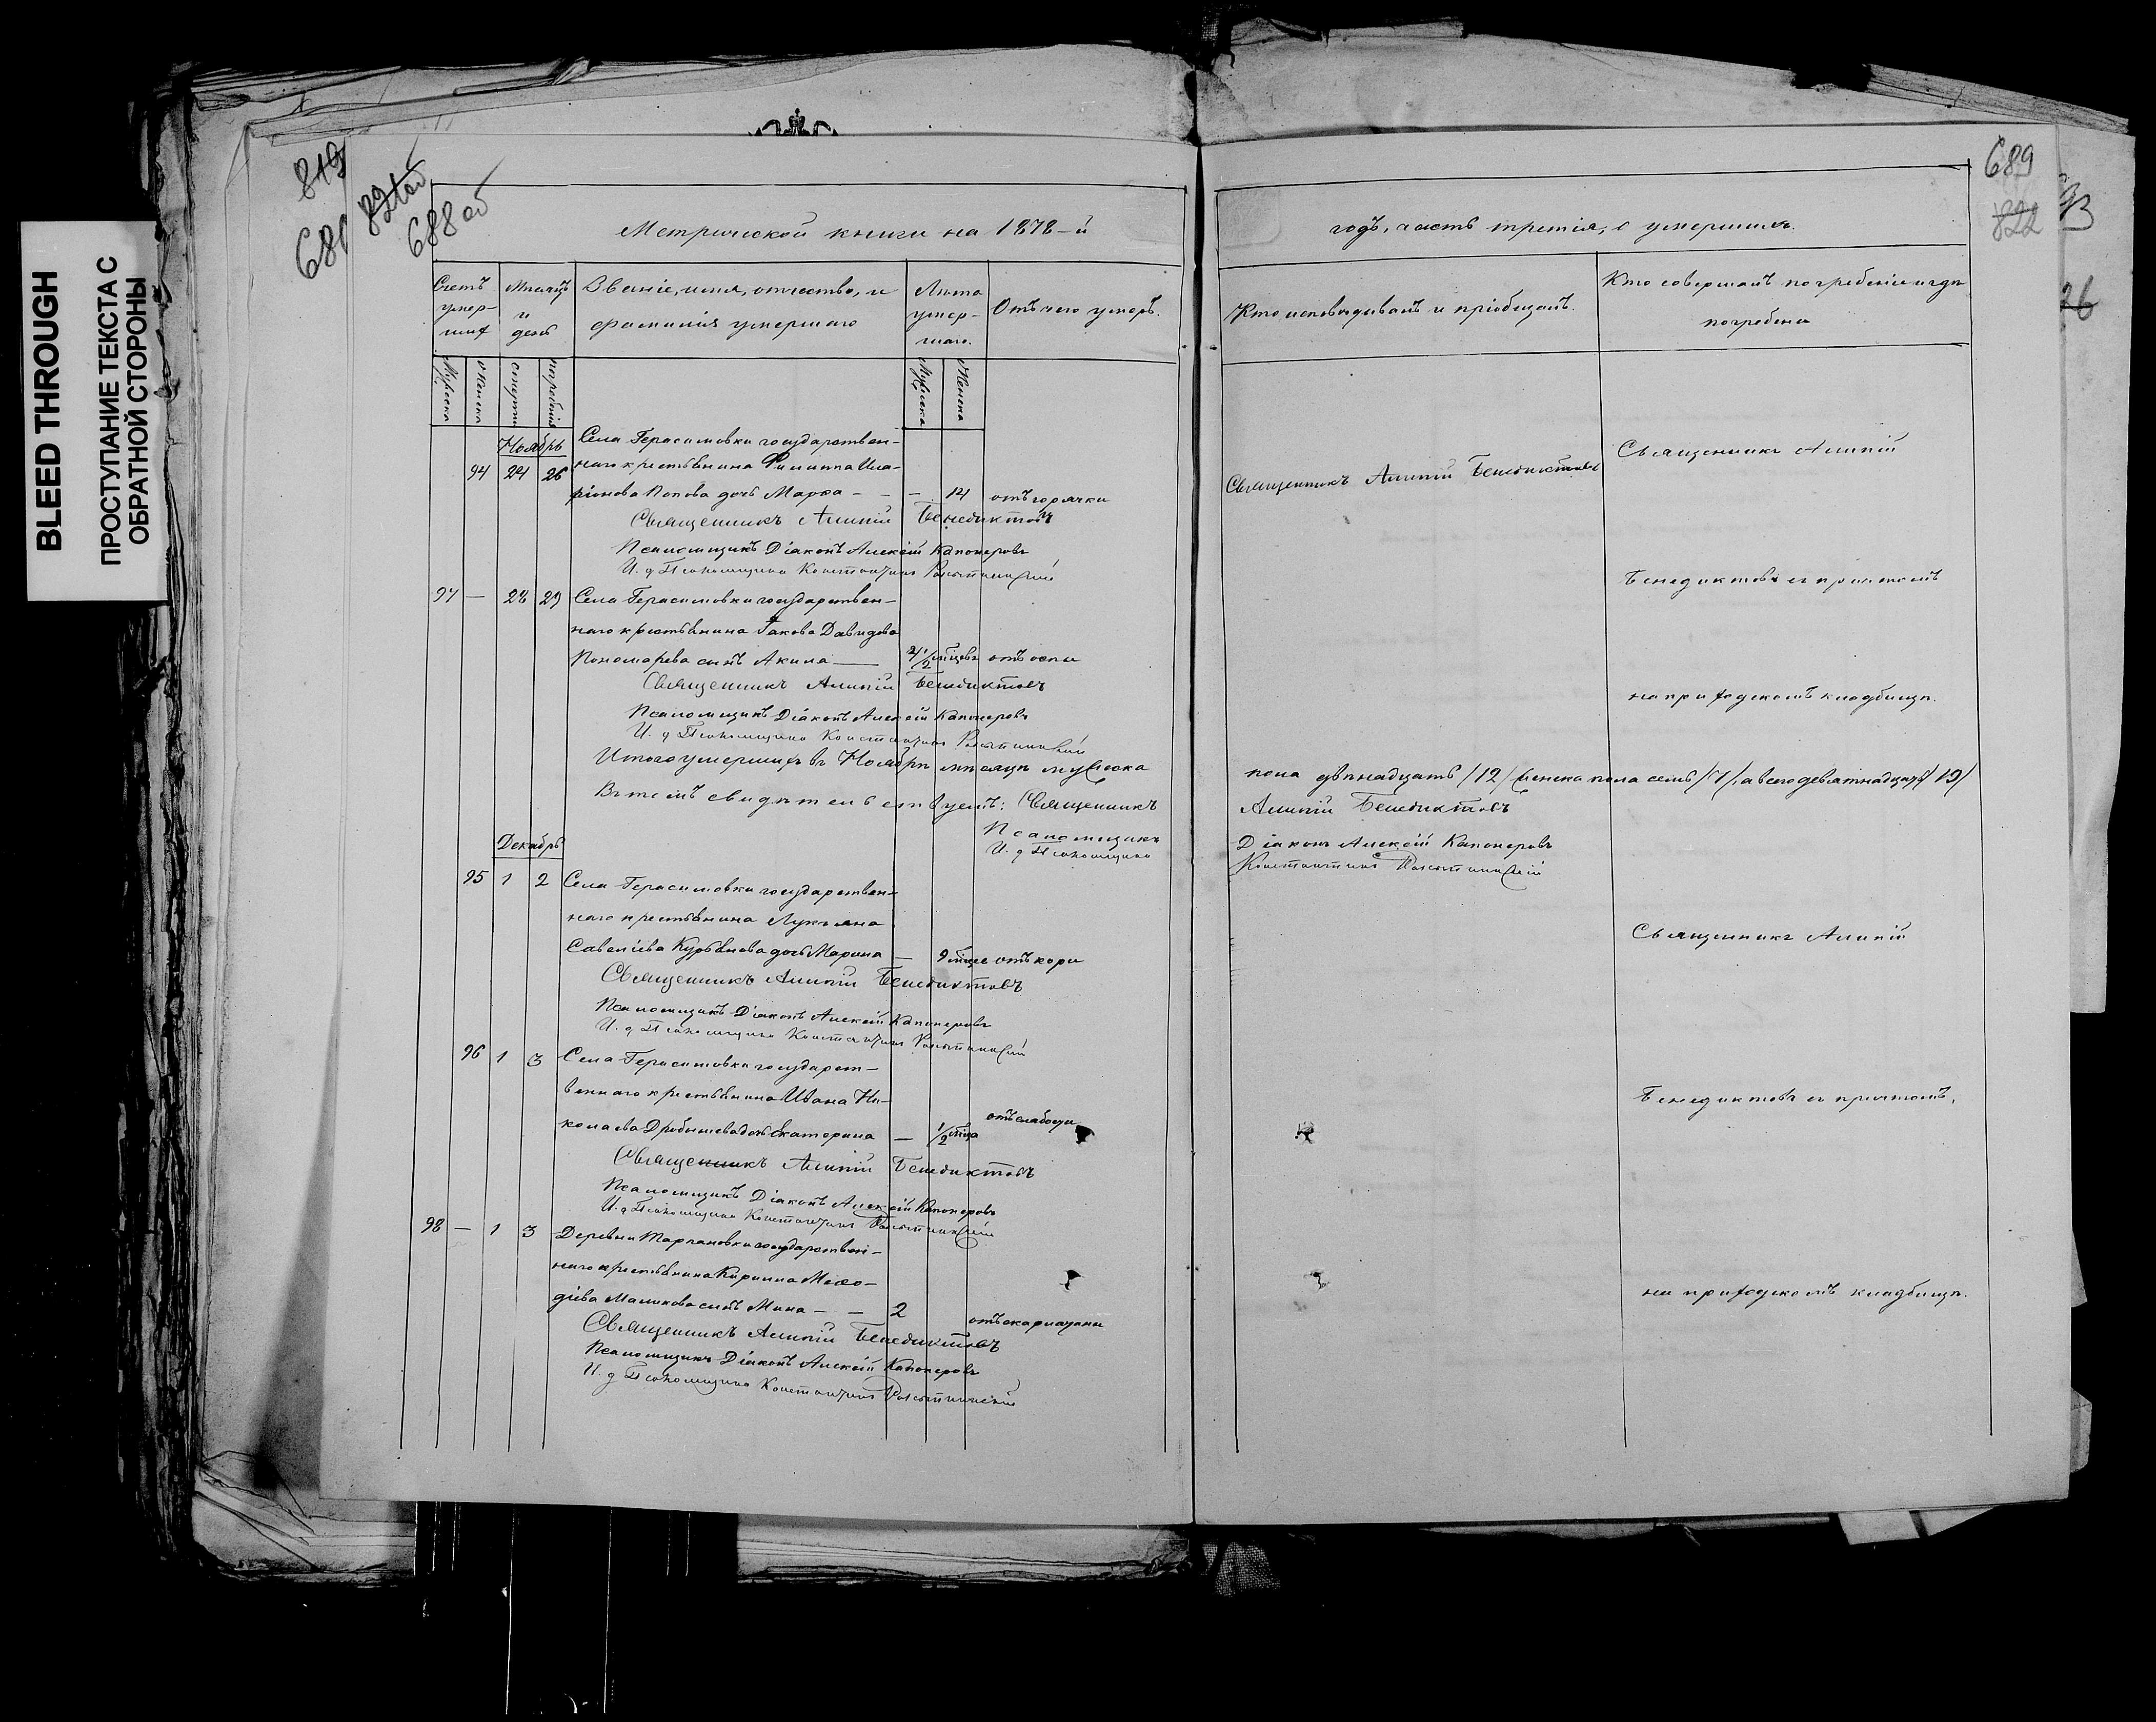 BLEED THROUGH
ПРОСТУПАНИЕ ТЕКСТА С
ОБРАТНОЙ СТОРОНЫ
819
821об
688об
Метрической книги на 1878-й
Счетъ умер-шихъ
Мѣсяцъ и день
Званіе, имя, отчество, и
фамилія умершаго
Лѣта умер-шаго.
Отъ чего умеръ.
Мужеска
Женска
смерти
погребенія
Мужеска
Женска
Ноябрь
Села Герасимовки государствен-
94 24 26 наго крестьянина Филиппа Ила-
ріонова Попова дочь Марѳа - - - 14 отъ горячки
Священникъ Алипій Бенедиктовъ
Псаломщикъ Діаконъ Алексій Капонеровъ
И. д Псаломщика Константинъ
97 — 28 29 Села Герасимовки государствен-
наго крестьянина Іакова Давидова
Пономарева сынъ Акила — 2 1/2 мѣсцовъ отъ оспы
Священникъ Алипій Бенедиктовъ
Псаломщикъ Діаконъ Алексій Капонеровъ
И. д Псаломщика Константинъ
Итого умершихъ въ Ноябрѣ мѣсяцѣ мужеска
Въ томъ свидѣтельствуемъ: Священникъ
Псаломщикъ
И. д Псаломщика
Декабрь
95 1 2 Села Герасимовки государствен-
наго крестьянина Лукьяна
Савеліева Курбанова дочь Марина — 9 мѣсце отъ кори
Священникъ Алипій Бенедиктовъ
Псаломщикъ Діаконъ Алексій Капонеровъ
И. д Псаломщика Константинъ
96 1 3 Села Герасимовки государст-
веннаго крестьянина Ивана Ни-
колаева Дробышева дочь Екатерина — 1/2 мѣсца отъ слабости
Священникъ Алипій Бенедиктовъ
Псаломщикъ Діаконъ Алексій Капонеровъ
И. д Псаломщика Константинъ
98 — 1 3 Деревни Таргановки государствен-
наго крестьянина Кирилла Меѳо-
діева Маликова сынъ Мина — — 2 отъ скарлатины
Священникъ Алипій Бенедиктовъ
Псаломщикъ Діаконъ Алексій Капонеровъ
И. д Псаломщика Константинъ
689
822
26
годъ, часть третія, о умершихъ.
Кто исповѣдывалъ и пріобщалъ.
Кто совершалъ погребеніе и гдѣ
погребены
Священникъ Алипій Бенедиктовъ
Священникъ Алипій
Бенедиктовъ съ причтомъ
на приходскомъ кладбищѣ.
пола двѣнадцать /12/ женска пола семь /7/, а всего девятнадцать /19/
Алипій Бенедиктовъ
Діаконъ Алексій Капонеровъ
Константинъ
Священникъ Алипій
Бенедиктовъ съ причтомъ,
на приходскомъ кладбищѣ.